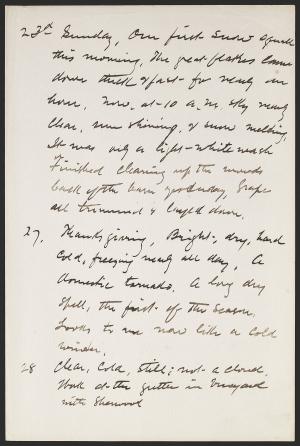 23d Sunday, Our first snow squall
this morning, The great flakes came
down thick & fast for nearly an
hour, Now, at 10 A.M. sky nearly
clear, sun shining, & snow melting,
It was only a light white wash
Finished clearing up the
back of the barn yesterday, Grape
all trimmed & layed down.
27, Thanksgiving, Bright, dry, hard
Cold, freezing nearly all day, A
domestic tornado. A long dry
spell, the first of the season.
Looks to me now like a cold
winter.
28 Clear, Cold, still; not a cloud.
Work at the gutter in Vineyard
with Sherwood